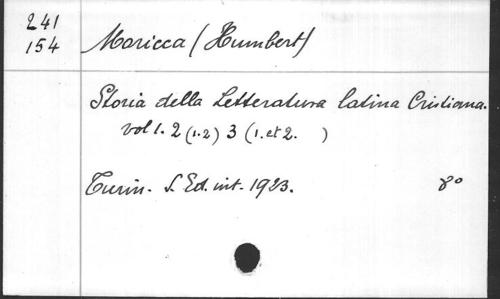 241
154
Moricca (Humbert)
Storia della Letteratura latina Cristiana.
vol 1. 2 (1.2) 3 (1. et 2. )
Turin. S. Ed. int. 1923. 8°